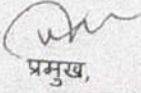 प्रमुख,